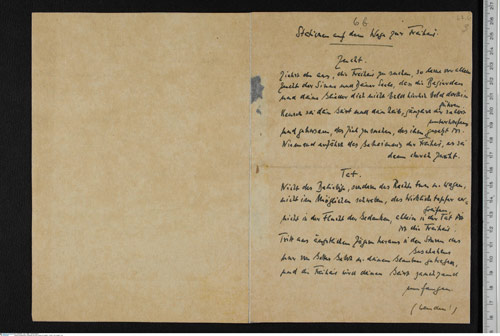 66
Stationen auf dem Wege zur Freiheit.
Zucht.
Ziehst du aus, die Freiheit zu suchen, so lerne vor allem
Zucht der Sinne und deiner Seele, dass die Begierden
und deine Glieder dich nicht bald hierhin bald dorthin
führen.
Keusch sei dein Geist und dein Leib, gänzlich dir selbst
unterworfen
und gehorsam, das Ziel zu suchen, das ihm gesetzt ist.
Niemand erfährt das Geheimnis der Freiheit, es sei
denn durch Zucht.
Tat.
Nicht das Beliebige, sondern das Rechte tun u. wagen,
nicht im Möglichen schweben, das Wirkliche tapfer er-
greifen,
nicht in der Flucht der Gedanken, allein in der Tat
ist die Freiheit.
Tritt aus ängstlichem Zögern heraus in den Sturm des
Geschehens
nur von Gottes Gebot u. deinem Glauben getragen,
und die Freiheit wird deinen Geist jauchzend
umfangen
(wenden!)